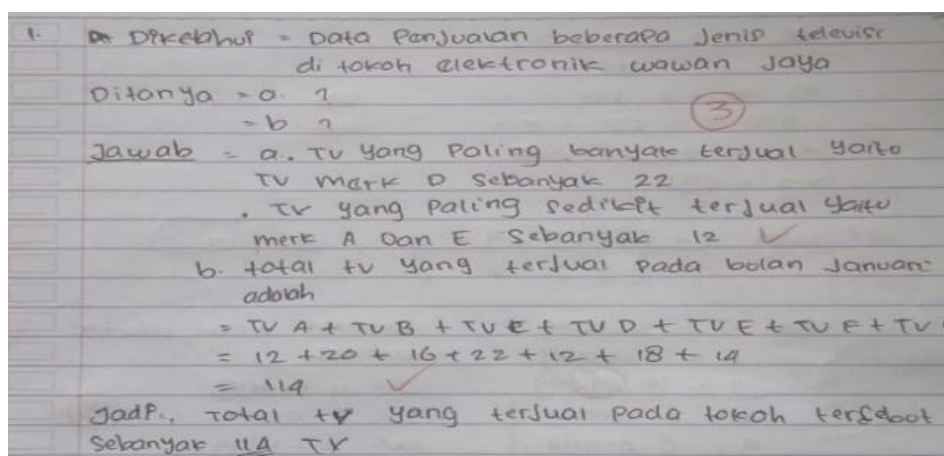 1. Dikelahui = Data Penjualan beberapa Jenis televisi
di tokoh elektronik wawan Jaya
Ditanya = a. ?
= b ?
3
Jawab = a. . TV yang Paling banyak terjual yaito
TV merk D Sebanyak 22
. TV yang Paling sedikit terjual yaitu
merk A Dan E Sebanyak 12 ✓
b. total tv yang terjual pada bolan Januari
adalah
= TV A + TV B + TV C + TV D + TV E + TV F + TV
= 12 + 20 + 16 + 22 + 12 + 18 + 14
= 114 ✓
Jadi., Total tv yang terjual pada tokoh tersebot
Sebanyak 114 TV